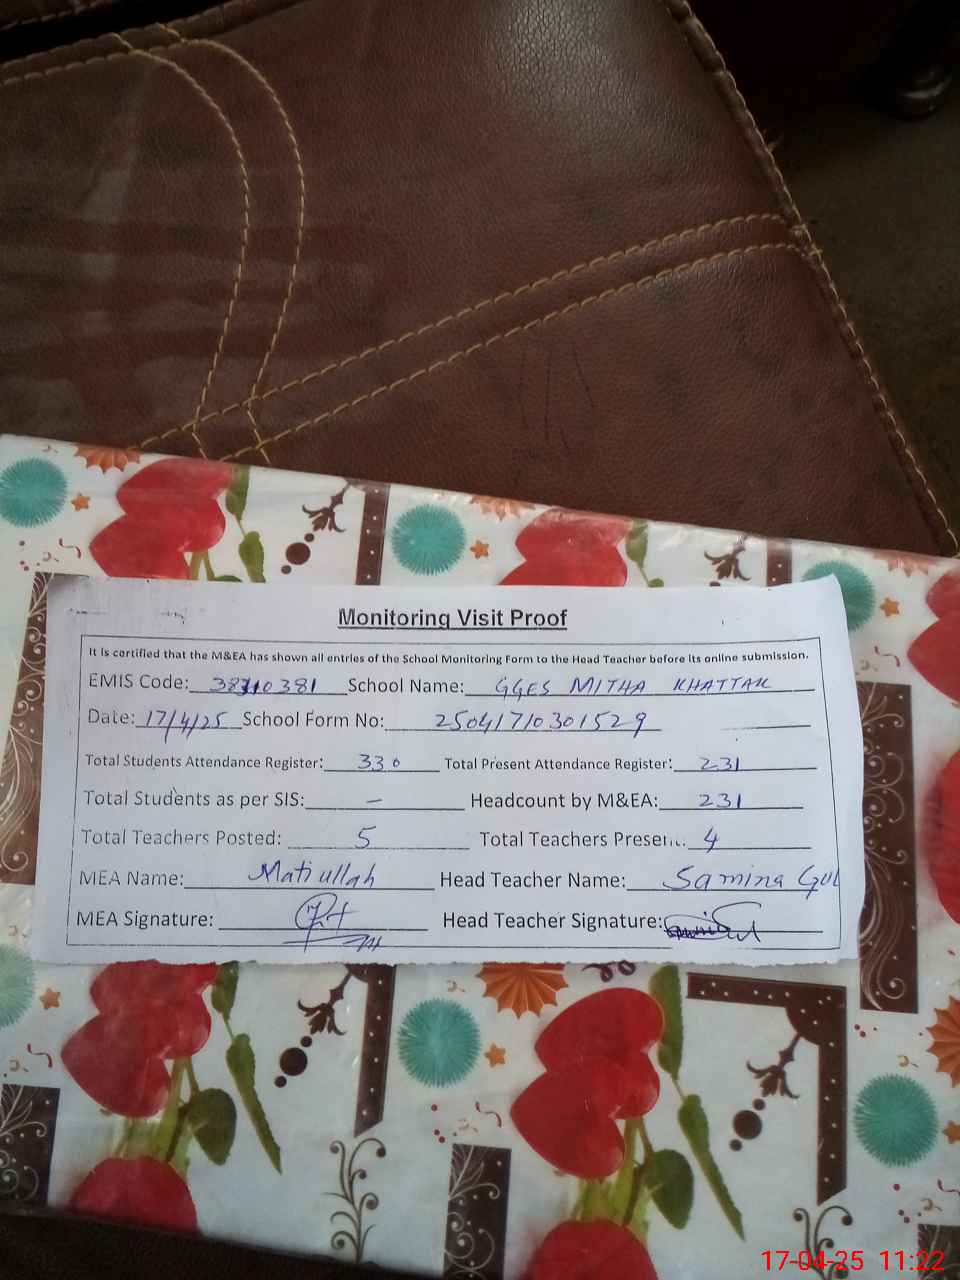 Monitoring Visit Proof
It is certified that the M&EA has shown all entries of the School Monitoring Form to the Head Teacher before its online submission.
EMIS Code: 38710381 School Name: GGES MITHA KHATTAK
Date: 17/4/25 School Form No: 25041710301529
Total Students Attendance Register: 330 Total Present Attendance Register: 231
Total Students as per SIS: – Headcount by M&EA: 231
Total Teachers Posted: 5 Total Teachers Present: 4
MEA Name: Matiullah Head Teacher Name: Samina Gul
MEA Signature: Head Teacher Signature:
17-04-25 11:22